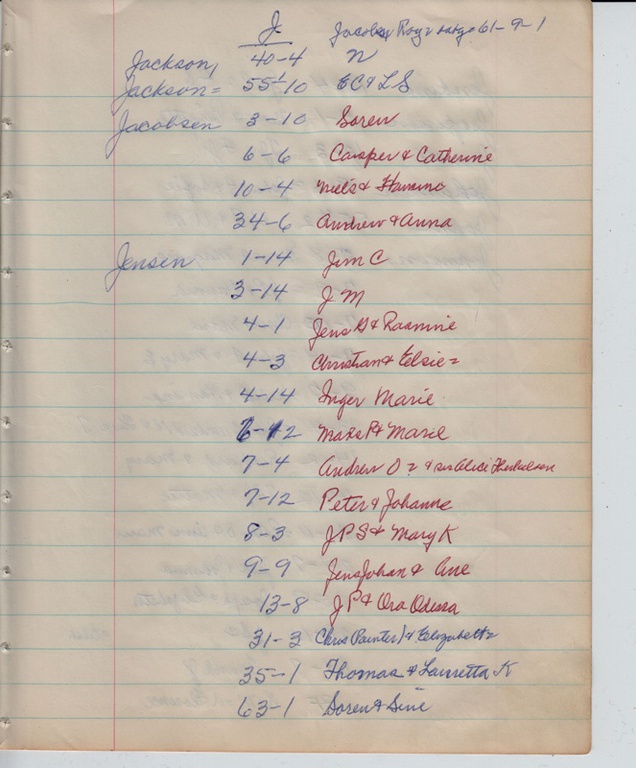 J. Jacobs Roy & 61-9-1
Jackson, 40-4 N
Jackson= 55-10 EC & LS
Jacobsen 3-10 Soren
6-6 Casper & Catherine
10-4 Niels & Hannina
34-6 Andrew & Anna
Jensen 1-14 Jim C
3-14 J M
4-1 Jens G & Rasmine
4-3 Christian & Elsie=
4-14 Inger Marie
6-12 Mads P & Marie
7-4 Andrew O= & Alice
7-12 Peter & Johanne
8-3 J P S & Mary K
9-9 Jens Johan & Ane
13-8 J P & Ora Odessa
31-3 Chris (Painter) & Elizabeth=
35-1 Thomas & Lauretta K
63-1 Soren & Sine